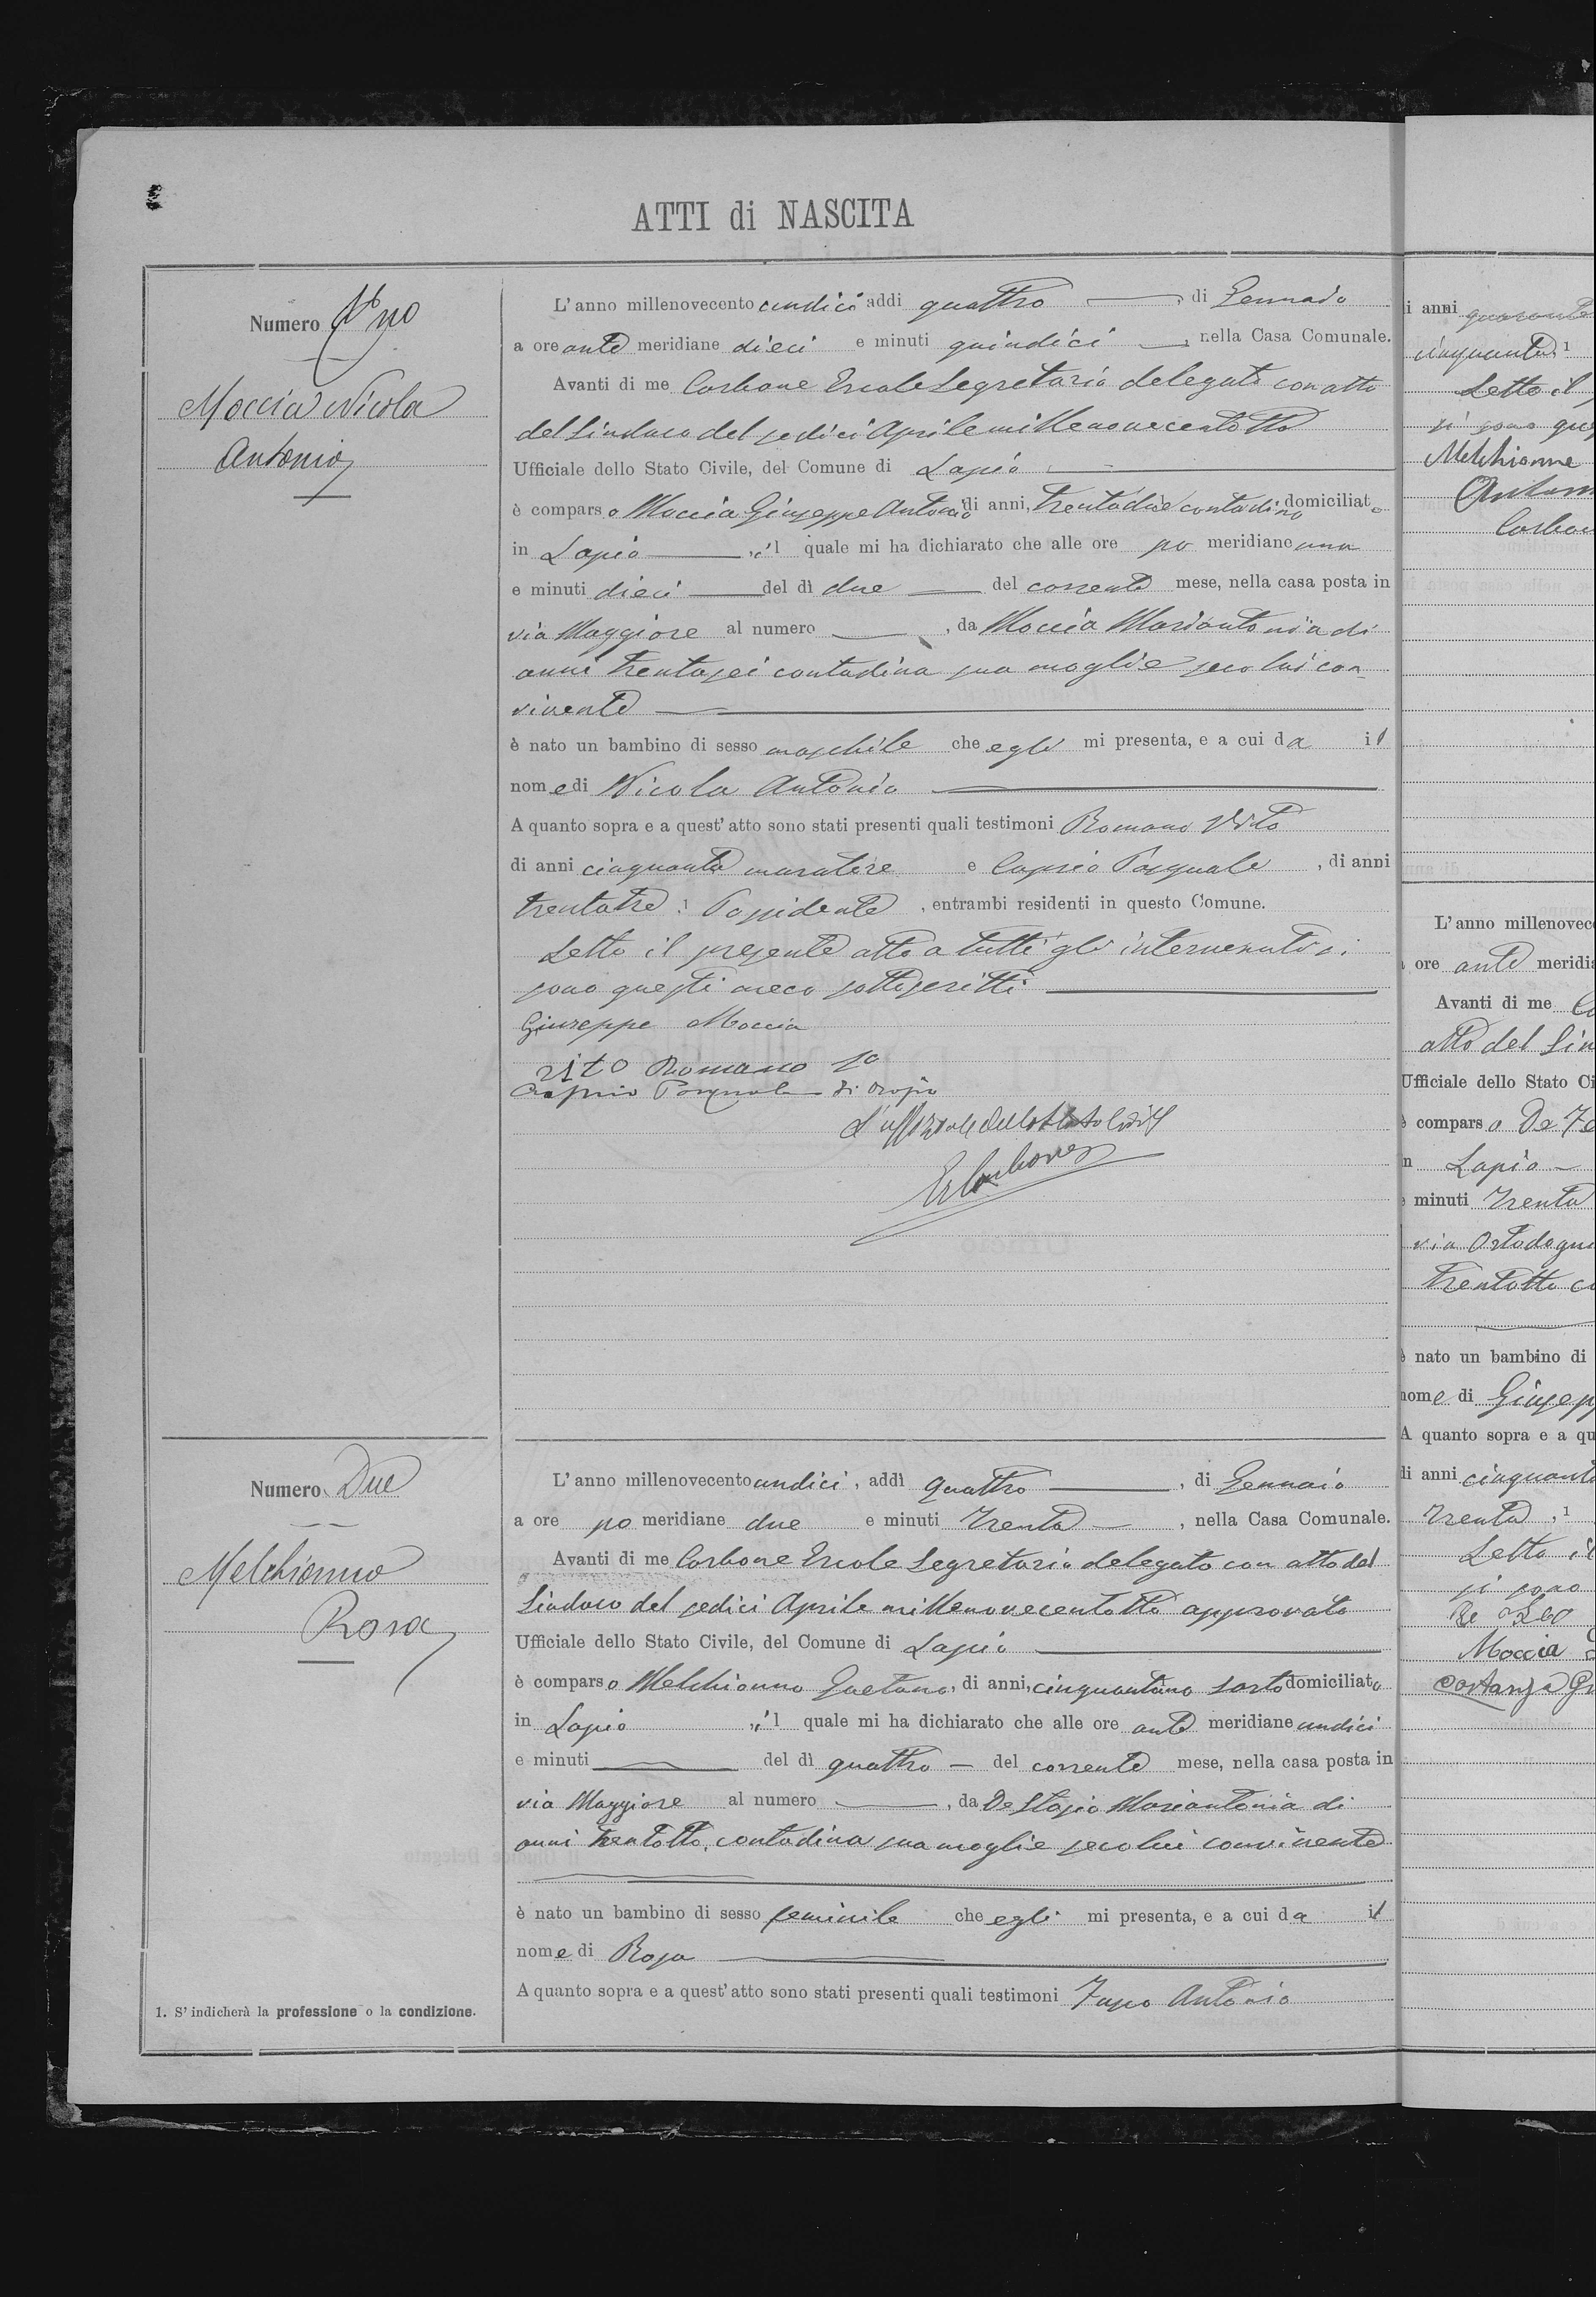 ATTI di NASCITA
Numero Uno
Moccia Nicola
Antonio
L'anno millenovecento undici addì quattro, di Gennaio
a ore ante meridiane dieci e minuti quindici, nella Casa Comunale.
Avanti di me Carbone Ercole Segretario delegato con atto
del Sindaco del sedici Aprile millenovecentotto
Ufficiale dello Stato Civile, del Comune di Lapio
è comparso Moccia Giuseppe Antonio di anni, trentadue contadino domiciliato
in Lapio, il quale mi ha dichiarato che alle ore po meridiane una
e minuti dieci del dì due del corrente mese, nella casa posta in
via Maggiore al numero, da Moccia Mariantonia di
anni trentasei contadina sua moglie seco lui con-
vivente
è nato un bambino di sesso maschile che egli mi presenta, e a cui da il
nome di Nicola Antonio
A quanto sopra e a quest'atto sono stati presenti quali testimoni Romano Vito
di anni cinquanta muratore e Caprio Pasquale, di anni
trentatre, 1 Possidente, entrambi residenti in questo Comune.
Letto il presente atto a tutti gli intervenuti si
sono questi meco sottoscritti
Giuseppe Moccia
Vito Romano
Caprio Pasquale
L'uffiziale dello Stato Civile
E Carbone
Numero Due
Melchionno
Rosa
L'anno millenovecento undici, addì quattro, di Gennaio
a ore po meridiane due e minuti trenta, nella Casa Comunale.
Avanti di me Carbone Ercole Segretario delegato con atto del
Sindaco del sedici Aprile millenovecentotto approvato
Ufficiale dello Stato Civile, del Comune di Lapio
è comparso Melchionno Gaetano, di anni, cinquantuno sarto domiciliato
in Lapio, il quale mi ha dichiarato che alle ore ante meridiane undici
e minuti del dì quattro del corrente mese, nella casa posta in
via Maggiore al numero, da De Stasio Mariantonia di
anni trentotto, contadina sua moglie seco lui convivente
è nato un bambino di sesso feminile che egli mi presenta, e a cui da il
nome di Rosa
A quanto sopra e a quest'atto sono stati presenti quali testimoni Antonio
1. S'indicherà la professione o la condizione.
i anni quarant
cinquanta, 1
Letto il
si sono ques
Melchionne
Anton
Carbon
L'anno millenovec
ore ante meridia
Avanti di me Ca
atto del Sin
Ufficiale dello Stato Ci
compars o De
n Lapio
minuti trenta
via
trentotto co
è nato un bambino di
nome di Giusepp
A quanto sopra e a qu
di anni cinquant
trenta, 1
Letto il
si sono
Moccia
Costanza